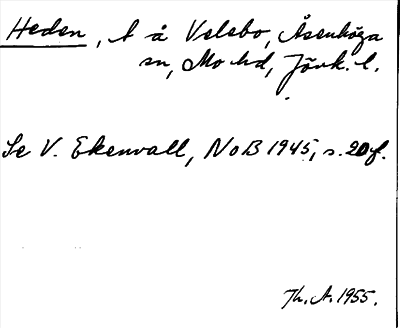 Heden, t å Velebo, Åsenhöga
sn, Mo hd, Jönk. l.
Se V. Ekenvall, NoB 1945, s. 20 f.
Th. A. 1955.